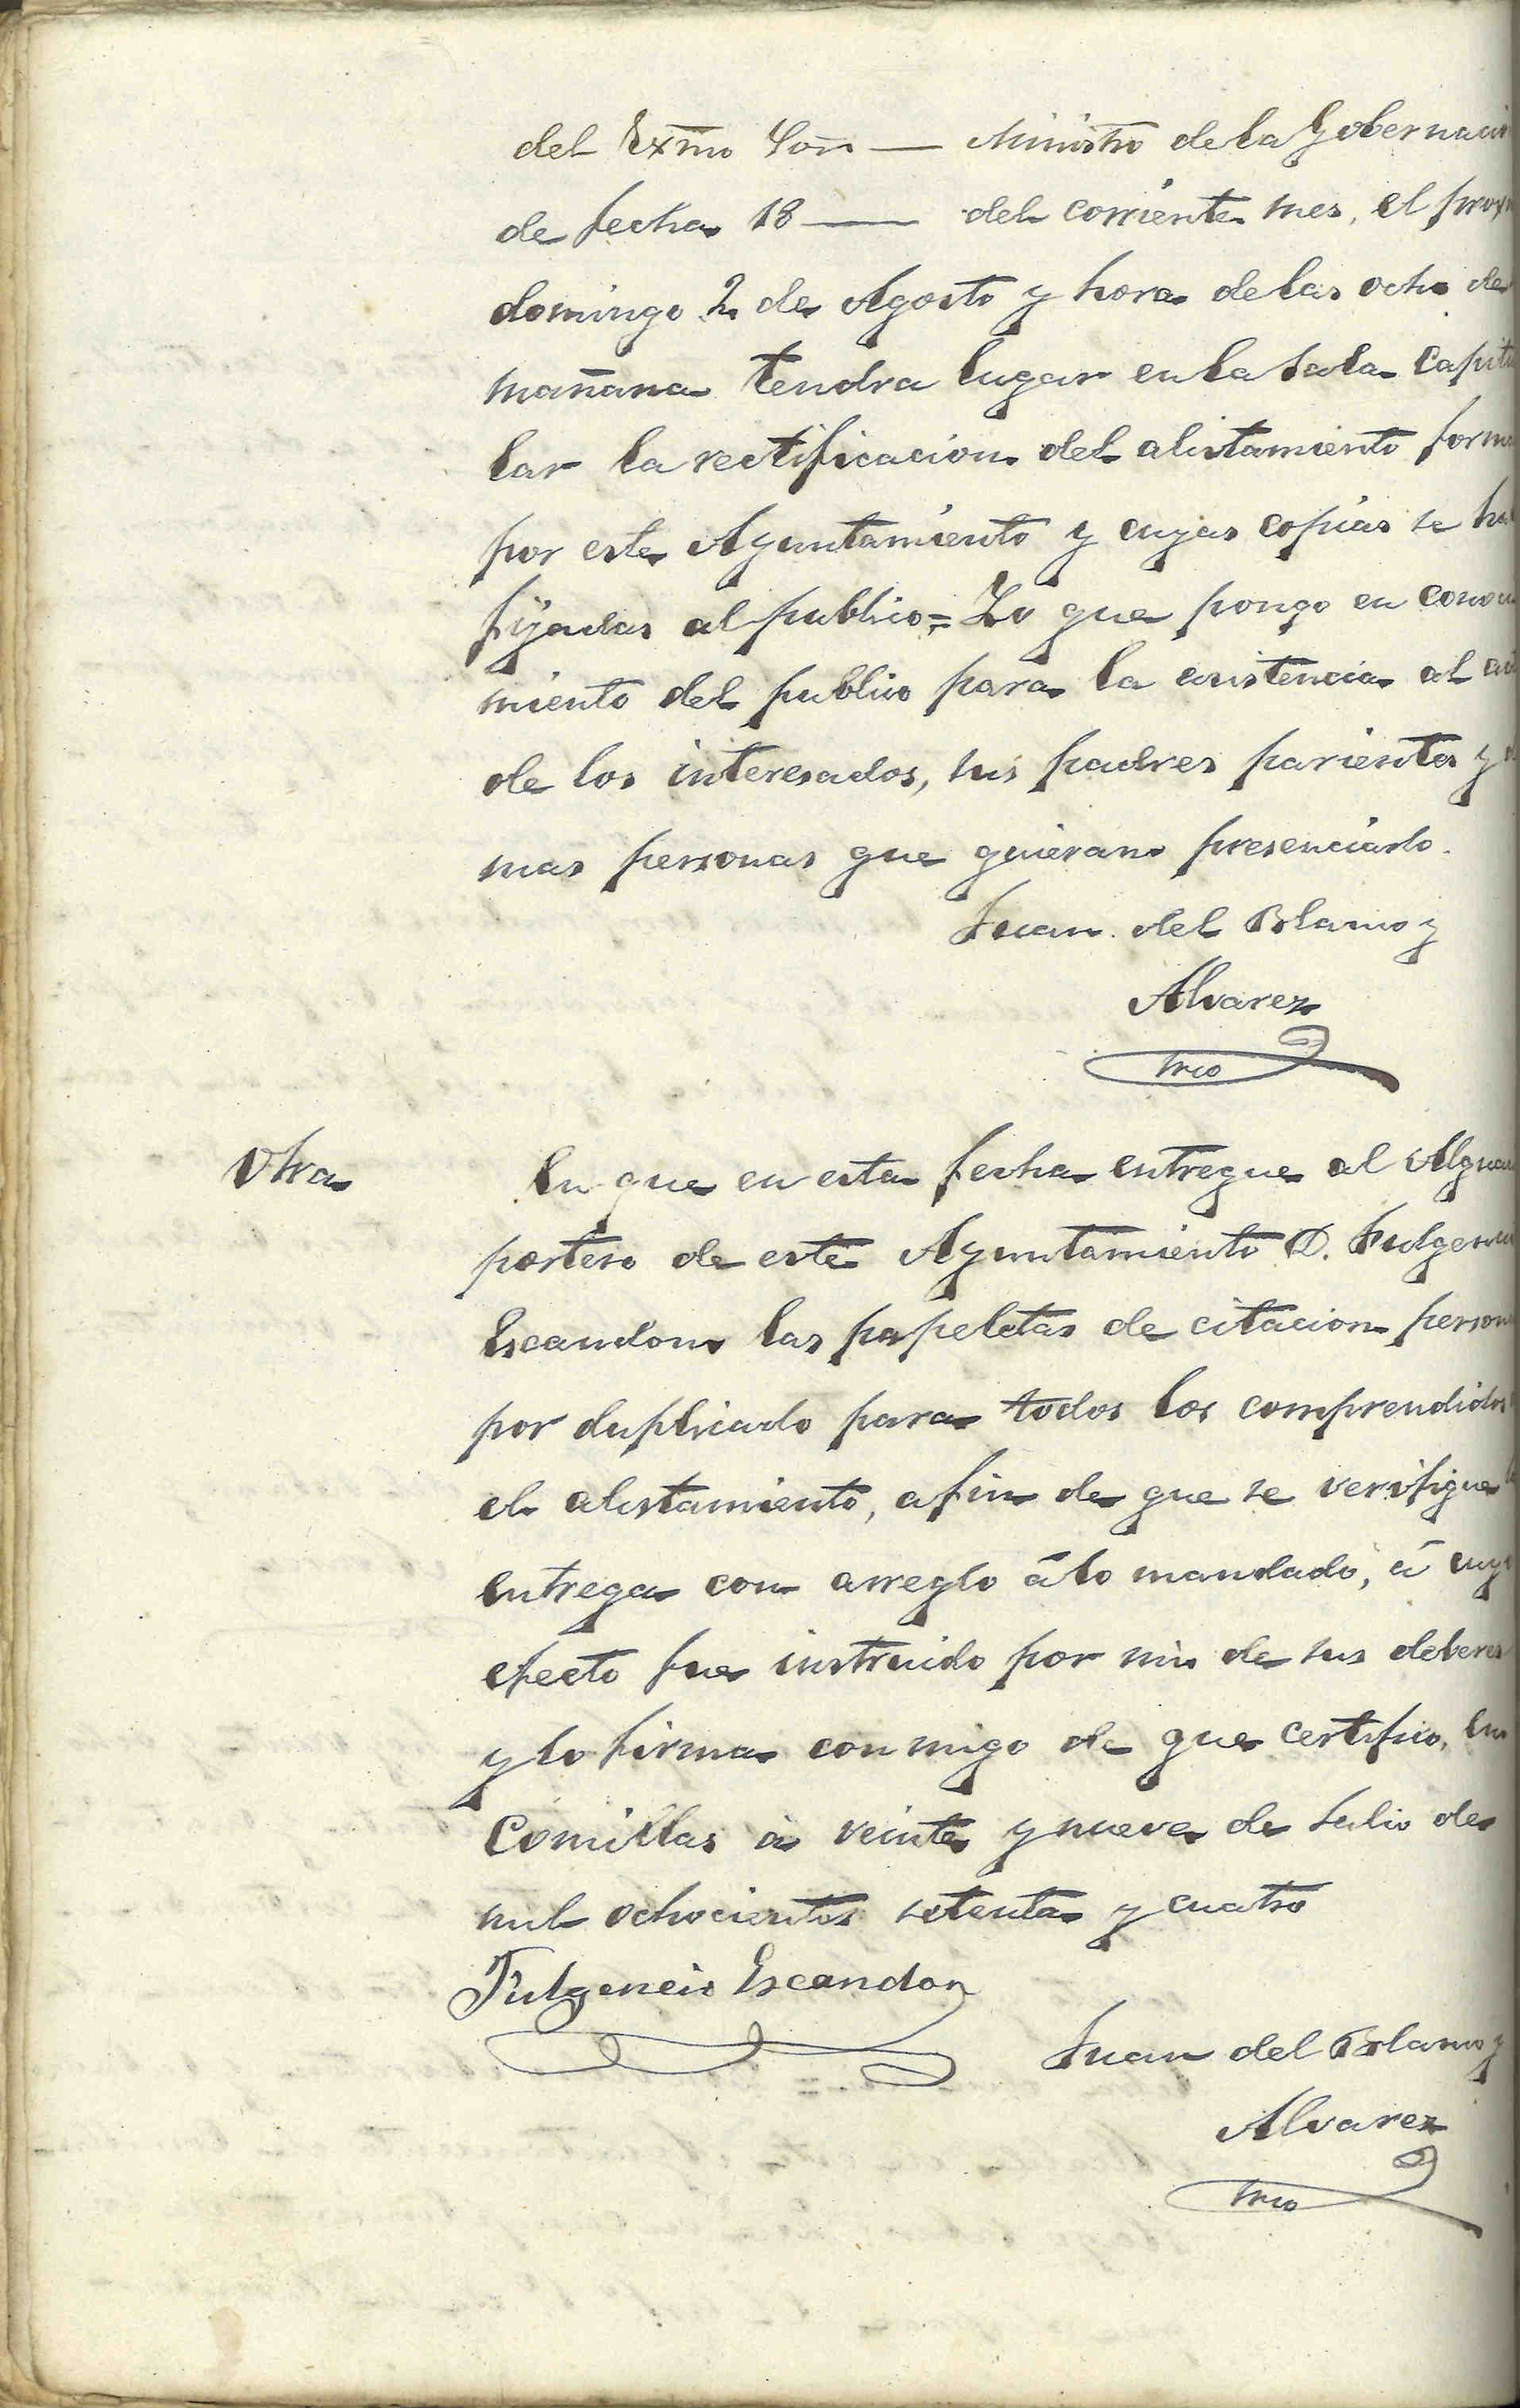 del Exmo Sor — Ministro de la Gobernaci
de fecha 18 — del corriente mes, el prox
domingo 2 de Agosto y hora de las ocho de
mañana tendra lugar en la Sala Capitu
lar la rectificacion del alistamiento forma
por este Ayuntamiento y cuyas copias se ha
fijadas al publico = Lo que pongo en conoci
miento del publico para la asistencia al act
de los interesados, sus padres parientes y
mas personas que quieran presenciarlo.
Juan del Blanco y
Alvarez
Srio
Otra
En que en esta fecha entregue al Algua
portero de este Ayuntamiento D. Fulgenci
Escandon las papeletas de citacion person
por duplicado para todos los comprendidos
el alistamiento, a fin de que se verifique
entrega con arreglo á lo mandado, á cuy
efecto fue instruido por mi de sus deberes
y lo firma conmigo de que certifico, en
Comillas á veinte y nueve de Julio de
mil ochocientos setenta y cuatro
Fulgencio Escandon
Juan del Blanco y
Alvarez
Srio